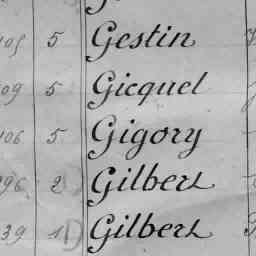 105 5 Gestin
09 5 Gicquel
106 5 Gigory
296 2 Gilbert
39 1 Gilbert